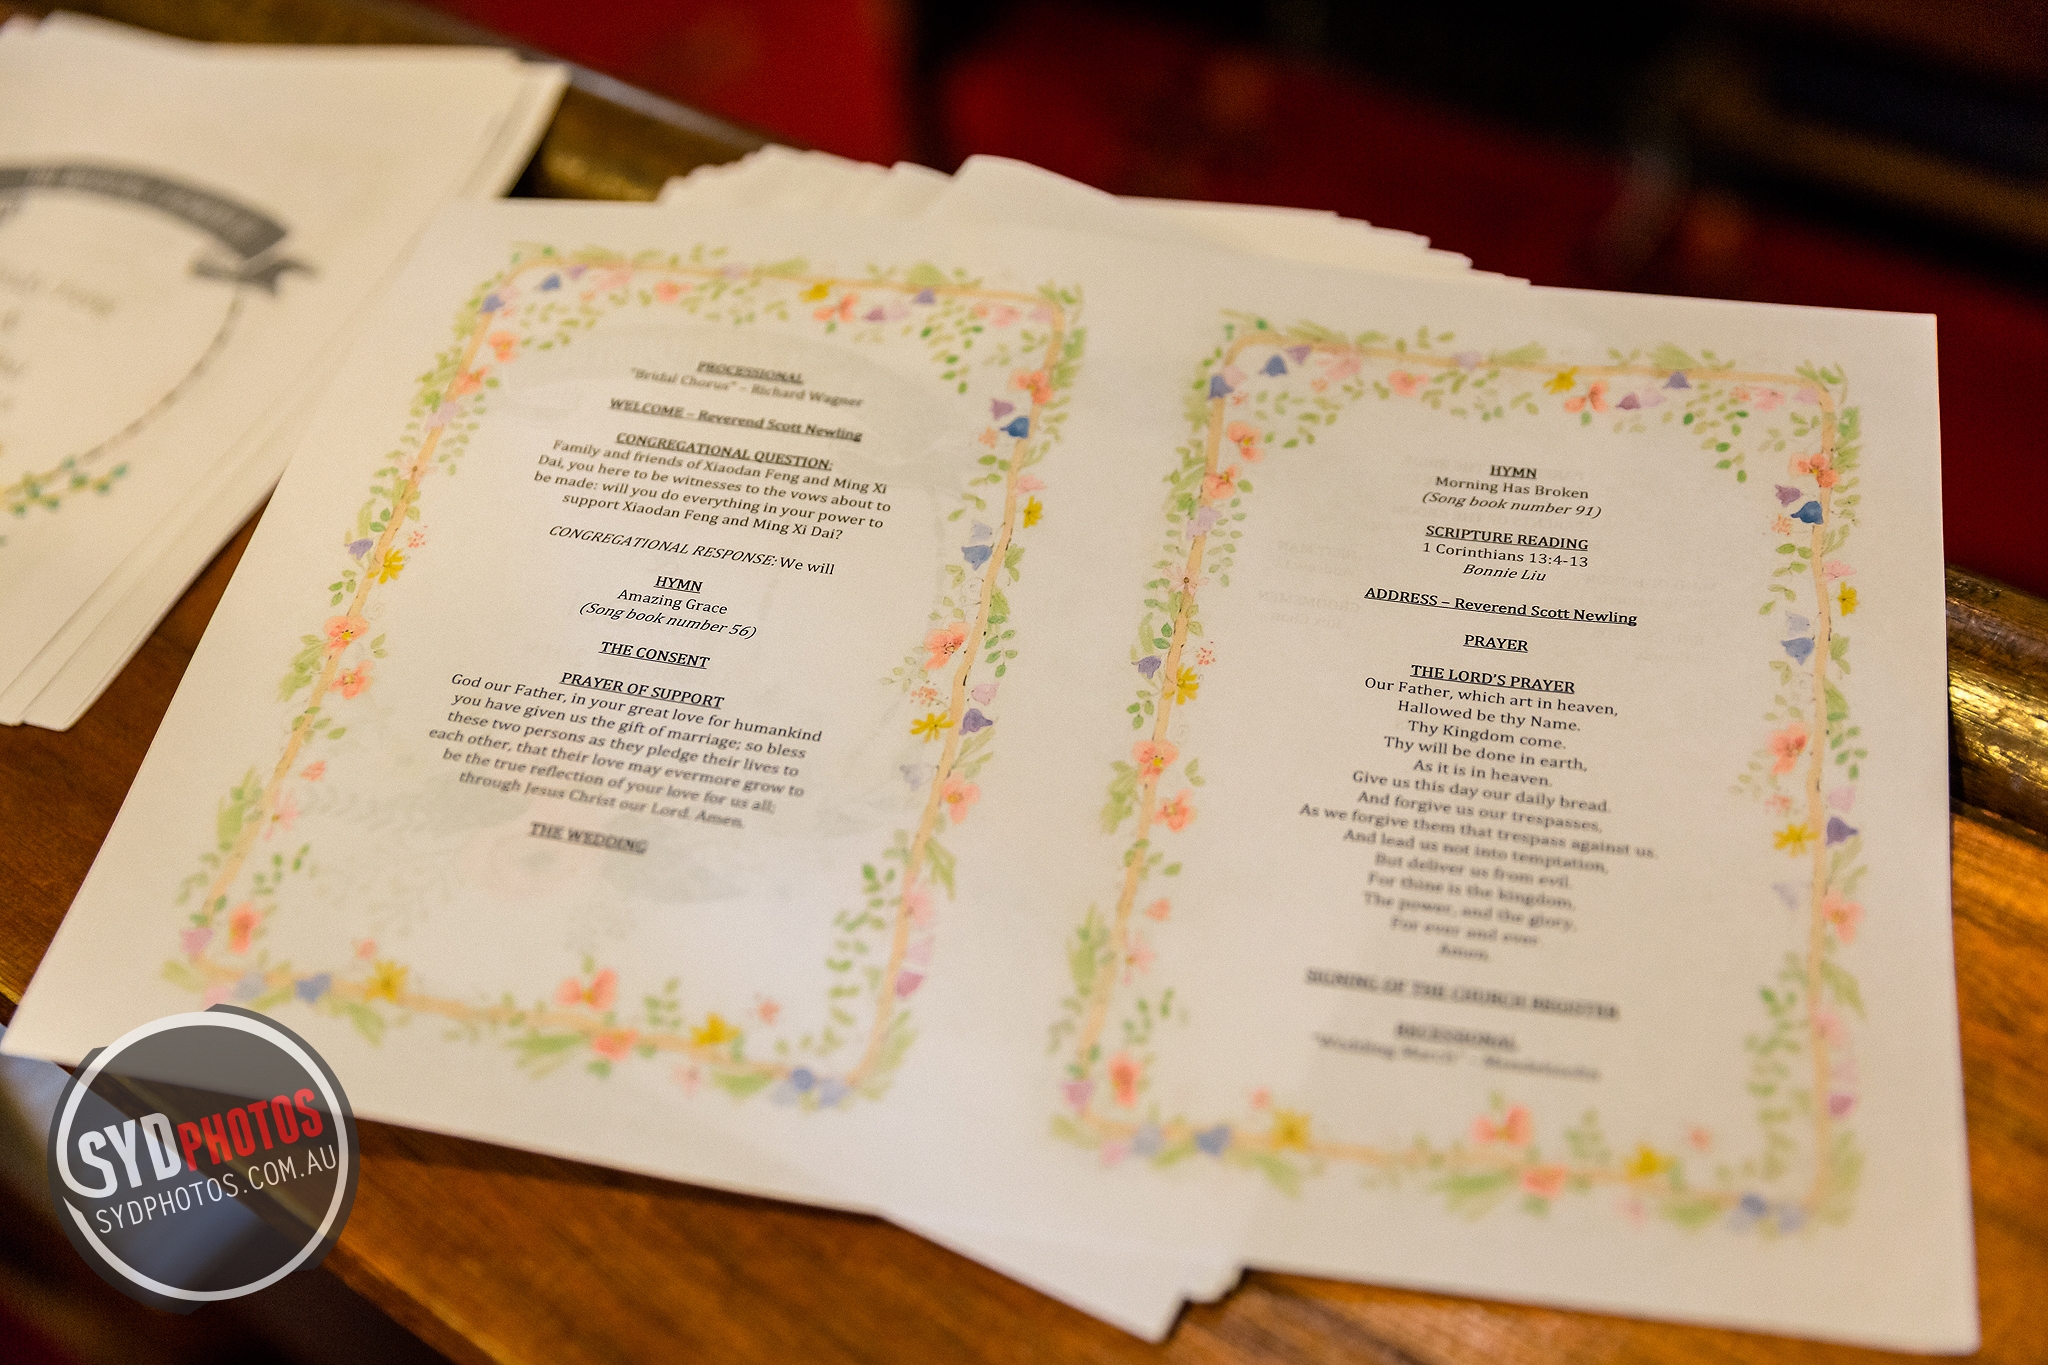 PROCESSIONAL
"Bridal Chorus" – Richard Wagner
WELCOME – Reverend Scott Newling
CONGREGATIONAL QUESTION:
Family and friends of Xiaodan Feng and Ming Xi
Dai, you here to be witnesses to the vows about to
be made: will you do everything in your power to
support Xiaodan Feng and Ming Xi Dai?
CONGREGATIONAL RESPONSE: We will
HYMN
Amazing Grace
(Song book number 56)
THE CONSENT
PRAYER OF SUPPORT
God our Father, in your great love for humankind
you have given us the gift of marriage; so bless
these two persons as they pledge their lives to
each other, that their love may evermore grow to
be the true reflection of your love for us all;
through Jesus Christ our Lord. Amen.
THE WEDDING
HYMN
Morning Has Broken
(Song book number 91)
SCRIPTURE READING
1 Corinthians 13:4-13
Bonnie Liu
ADDRESS – Reverend Scott Newling
PRAYER
THE LORD'S PRAYER
Our Father, which art in heaven,
Hallowed be thy Name.
Thy Kingdom come.
Thy will be done in earth,
As it is in heaven.
Give us this day our daily bread.
And forgive us our trespasses,
As we forgive them that trespass against us.
And lead us not into temptation,
But deliver us from evil.
For thine is the kingdom,
The power, and the glory,
For ever and ever.
Amen.
SIGNING OF THE CHURCH REGISTER
RECESSIONAL
"Wedding March" – Mendelssohn
SYDPHOTOS
SYDPHOTOS.COM.AU